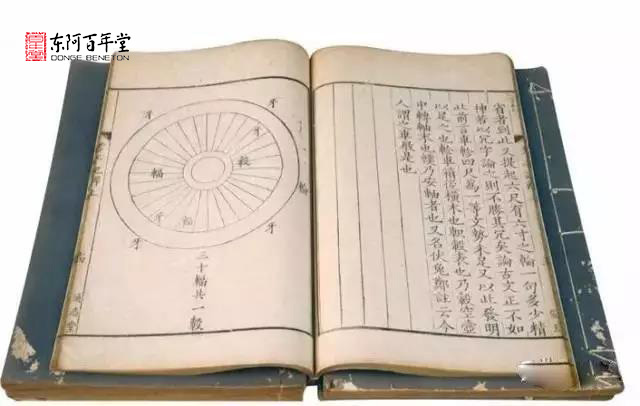 东阿百年堂
DONGE BENETON
者到此又提起六尺有六寸之輪一句多少精
神若以冗字論之則不勝其冗矣論古文正不如
此前言車軫四尺為一等文勢未足又以此發明
以足之也軫車箱後橫木也軹轂末也乃轂空壺
中轉軸末也轐乃安軸者也又名伏兔鄭註云今
人謂之車屐是也
牙
牙
牙
轂
輻
輪
牙
輻
牙
牙
三十輻共一轂
通志堂